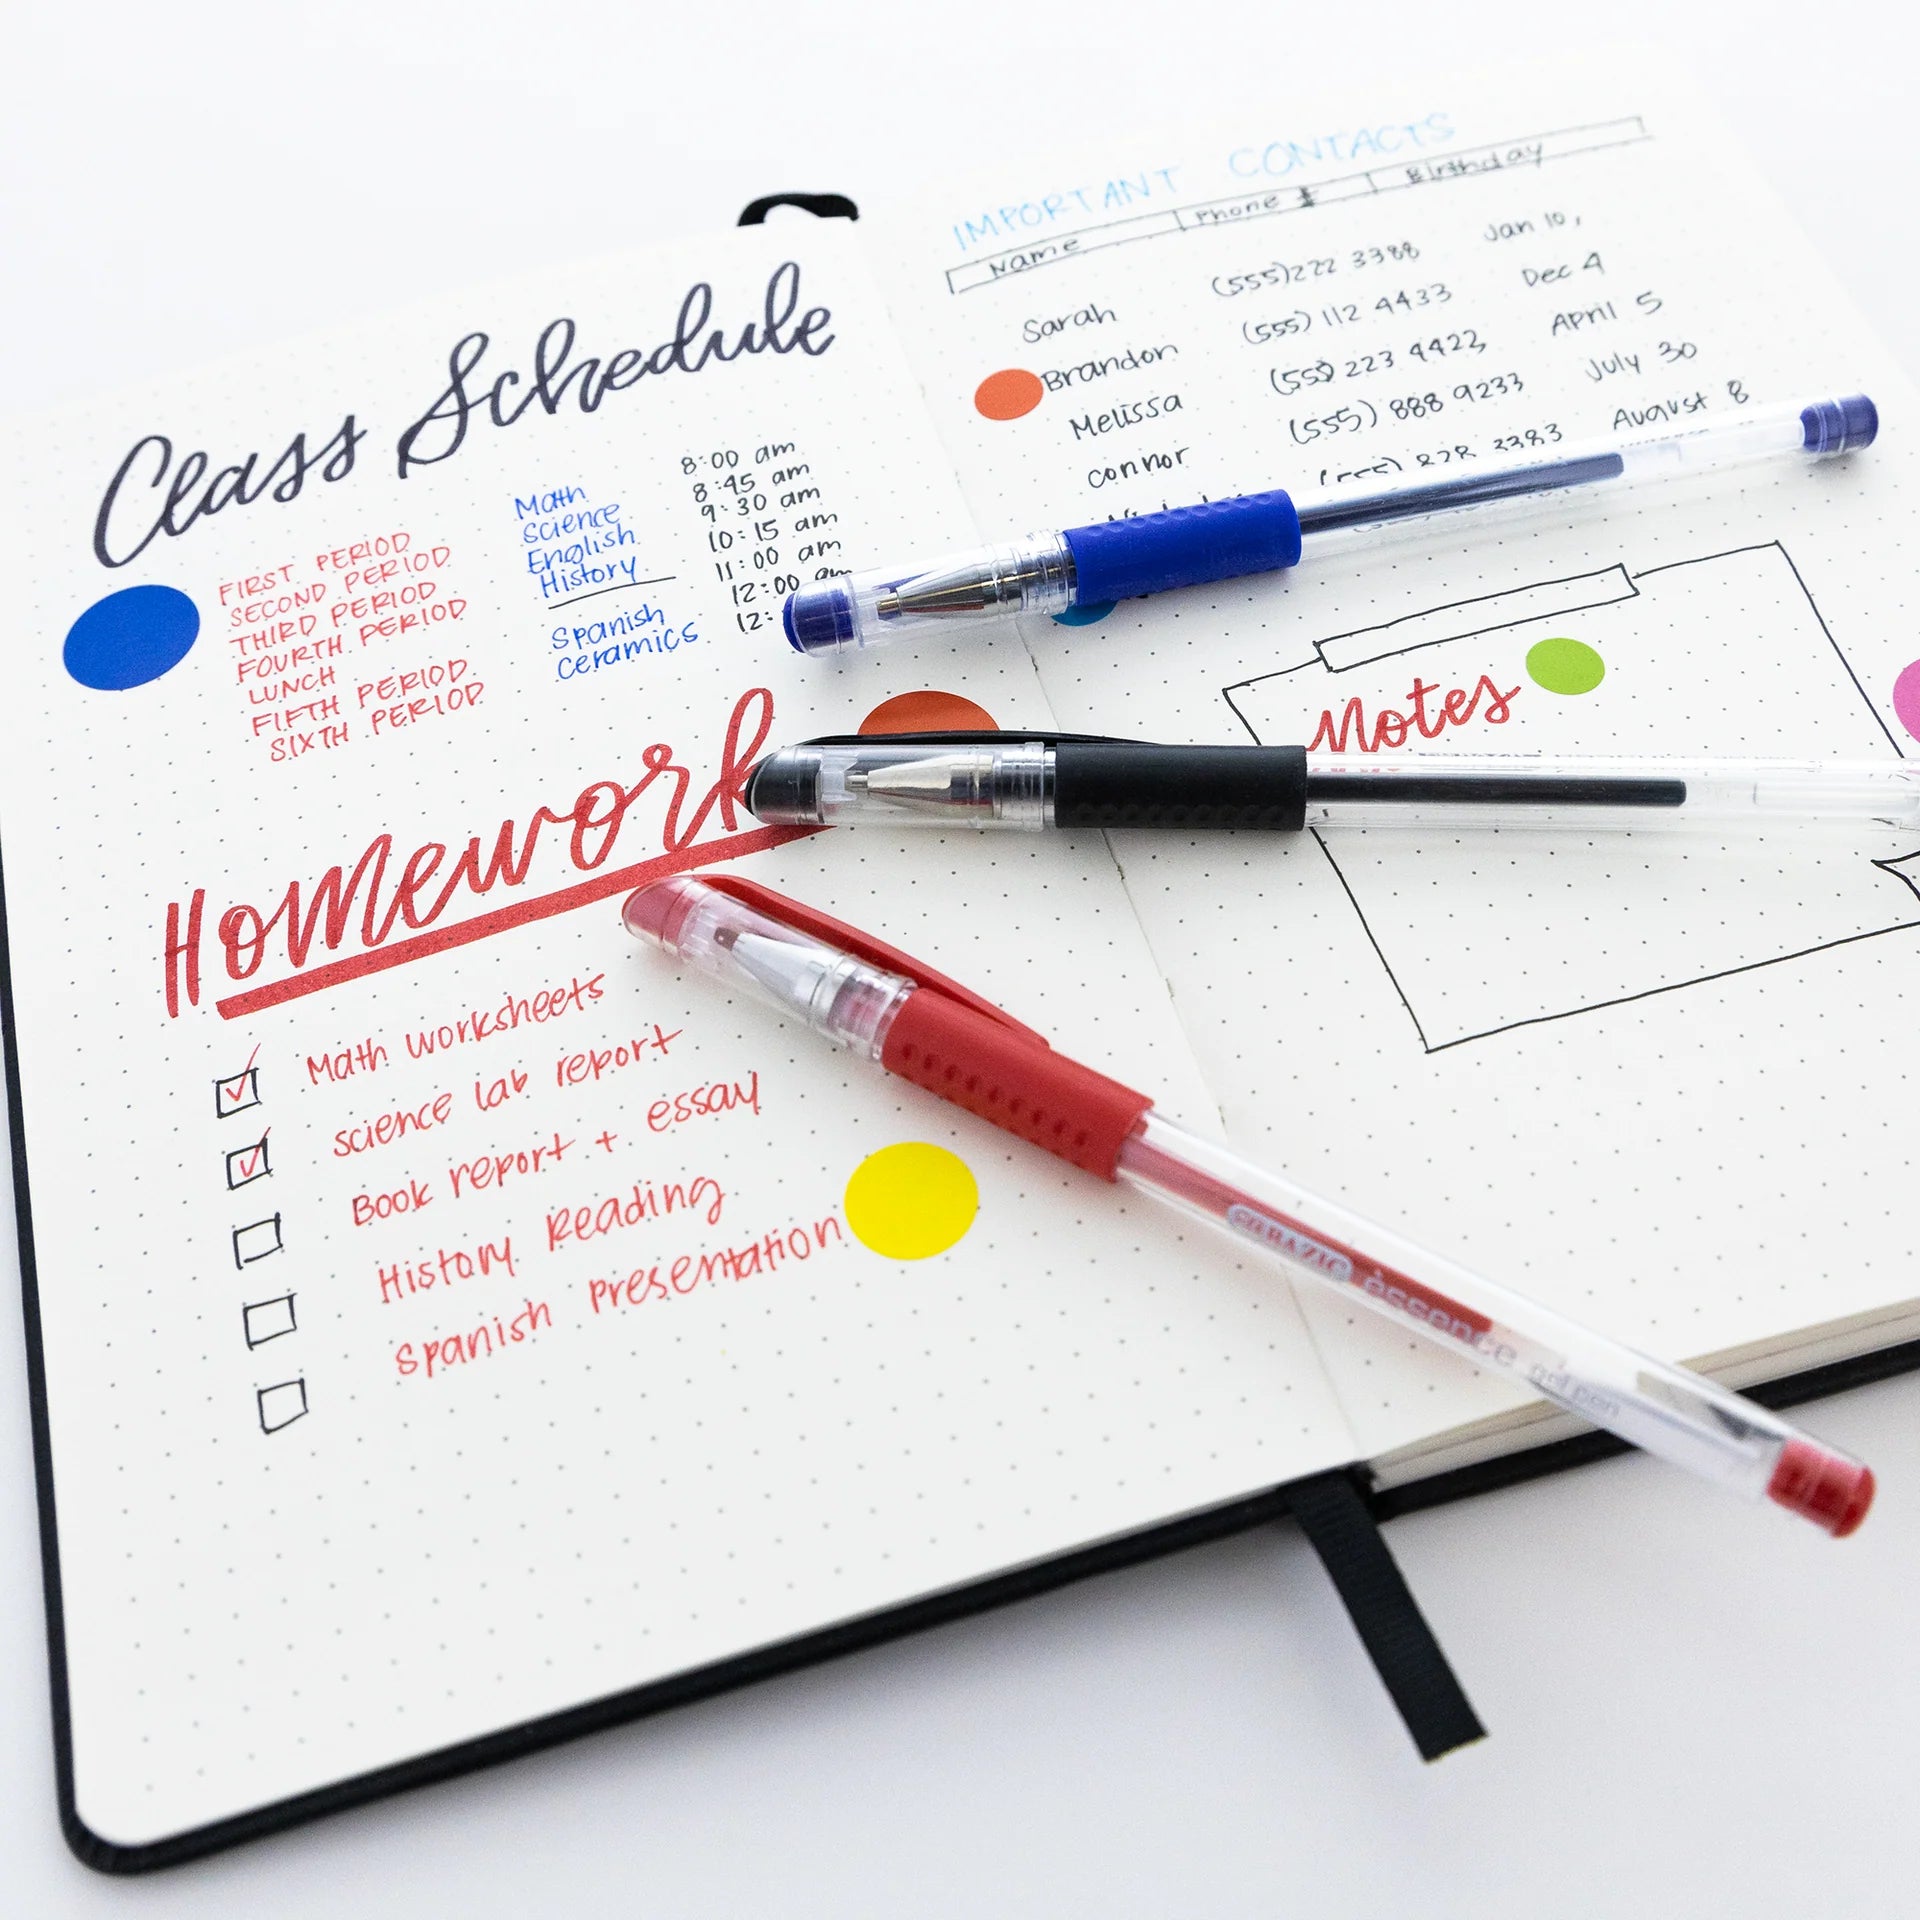 Class Schedule
FIRST PERIOD Math 8:00 am
SECOND PERIOD Science 8:45 am
THIRD PERIOD English 9:30 am
FOURTH PERIOD History 10:15 am
LUNCH 11:00 am
FIFTH PERIOD Spanish 12:00 am
SIXTH PERIOD ceramics 12:
Homework
Math worksheets
science lab report
Book report + essay
History Reading
Spanish presentation
IMPORTANT CONTACTS
Name Phone # Birthday
Sarah (555)222 3388 Jan 10,
Brandon (555) 112 4433 Dec 4
Melissa (555) 223 4422 April 5
connor (555) 888 9233 July 30
(555) 828 3383 August 8
Notes
èssence gel pen